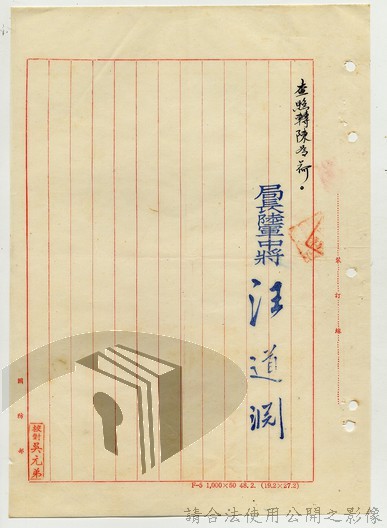 查照轉陳為荷。
局長陸軍中將
汪道淵
裝訂線
國防部
校對吳元弟
F-5 1,000×50 48.2. (19.2×27.2)
請合法使用公開之影像